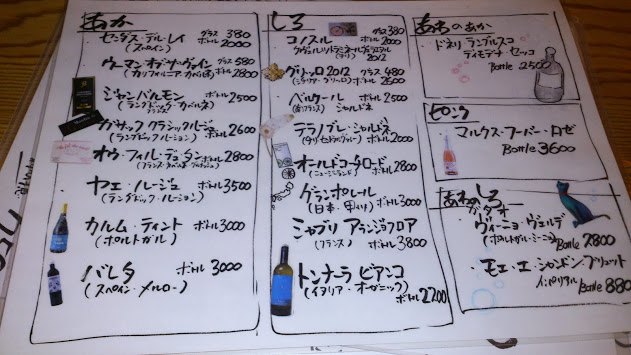 あか
センダス・デル・レイ グラス 380
(スペイン) ボトル 2000
ウーマン・オブ・ナ・ヴァイン グラス 580
(カリフォルニア・カベルネ) ボトル 2800
ジャン・バルモン ボトル 2500
(ラングドック・カベルネ)
フランス
ガサック クラシックルージュ ボトル 2600
(ラングドック・ルーション)
オウ・フィル・デュ・タン ボトル 2800
ヤエ・ルージュ ボトル 3500
(ラングドック・ルーション)
カルム・ティント ボトル 3000
(ポルトガル)
バレタ ボトル 3000
(スペイン・メルロー)
しろ
コノスル グラス 380
ボトル 2000
(チリ) 2012
グリッロ 2012 グラス 480
ボトル 2600
ベルクール ボトル 2500
(南フランス) シャルドネ
テラノブレ・シャルドネ
ボトル 2600
オールドコーチロード ボトル 2800
(ニュージーランド)
グランポレール
(日本・甲州) ボトル 3000
シャブリ アランジョフロア
(フランス) ボトル 3800
トンナーラ ビアンコ
(イタリア・オーガニック)
ボトル 2200
あわのあか
ドネリ・ランブルスコ
Bottle 2500
ピンク
マルクス・フーバー・ロゼ
Bottle 3600
あわのしろ
ガタオ
ヴィーニョ・ヴェルデ
Bottle 2800
モエ・エ・シャンドン・ブリュット
インペリアル Bottle 880